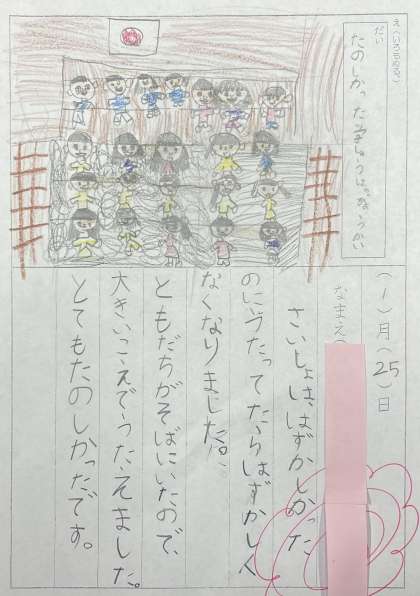 え(いろもぬる)
だい
たのしかった学しゅうはっぴょうかい
(1)月(25)日
なまえ(
さいしょは、はずかしかった
のに、うたってたらはずかしく
なくなりました。
ともだちがそばにいたので、
大きいこえでうたえました。
とてもたのしかったです。